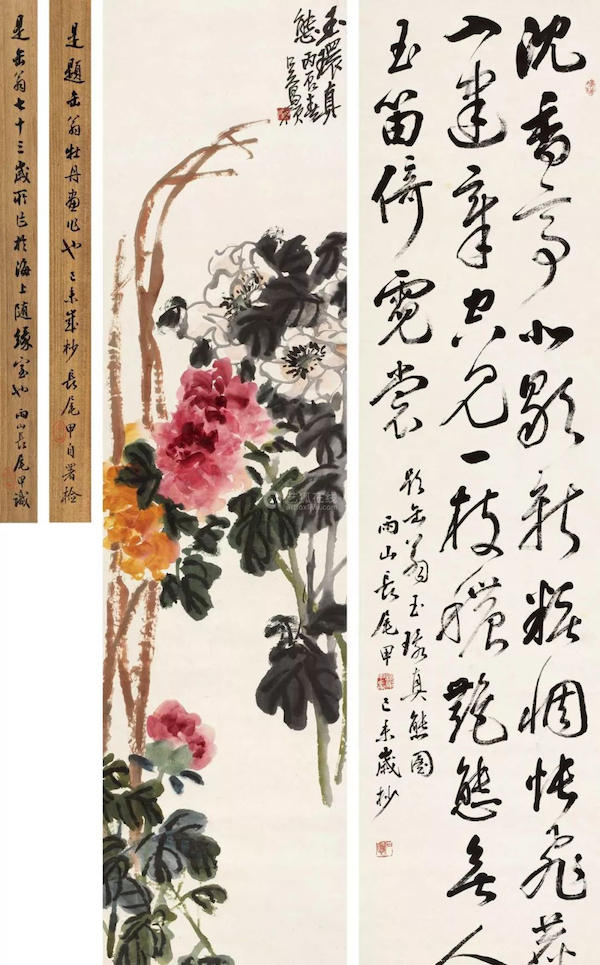 沈香亭北歇新粧惆悵飛
入建章空見一枝穠艷態無人
玉笛倚霓裳
題缶翁玉環真態圖
雨山長尾甲 己未歲杪
玉環真
態丙辰春
吳昌碩
是題缶翁牡丹畫作也己未歲杪長尾甲自署檢
是缶翁七十三歲所作於海上随緣室也雨山長尾甲識